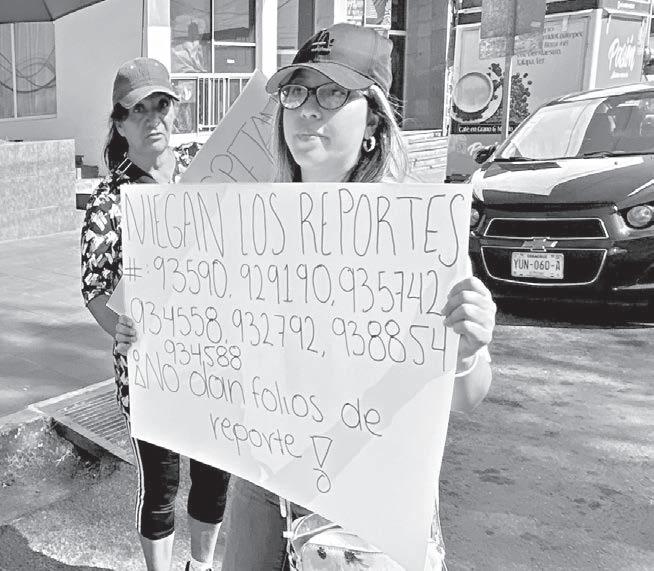 NIEGAN LOS REPORTES
#: 93590, 929190, 935742
934558, 932792, 938854
934588
¡No dan folios de
reporte!
Xalapa, Ver.
Café en Grano &
VERACRUZ
YUN-060-A